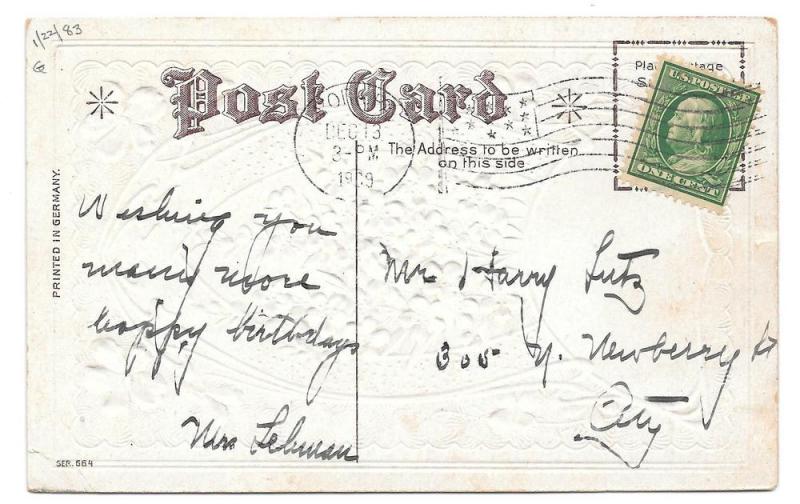 1/22/83
G
Post Card
Pla tage
U.S. POSTAGE
ONE CENT
DEC 13
3- PM
1909
The Address to be written
on this side
PRINTED IN GERMANY.
Wishing you
many more
happy birthdays
Mrs Lehman
Mr Harry Lutz
305 N. Newberry St
City
SER. 664